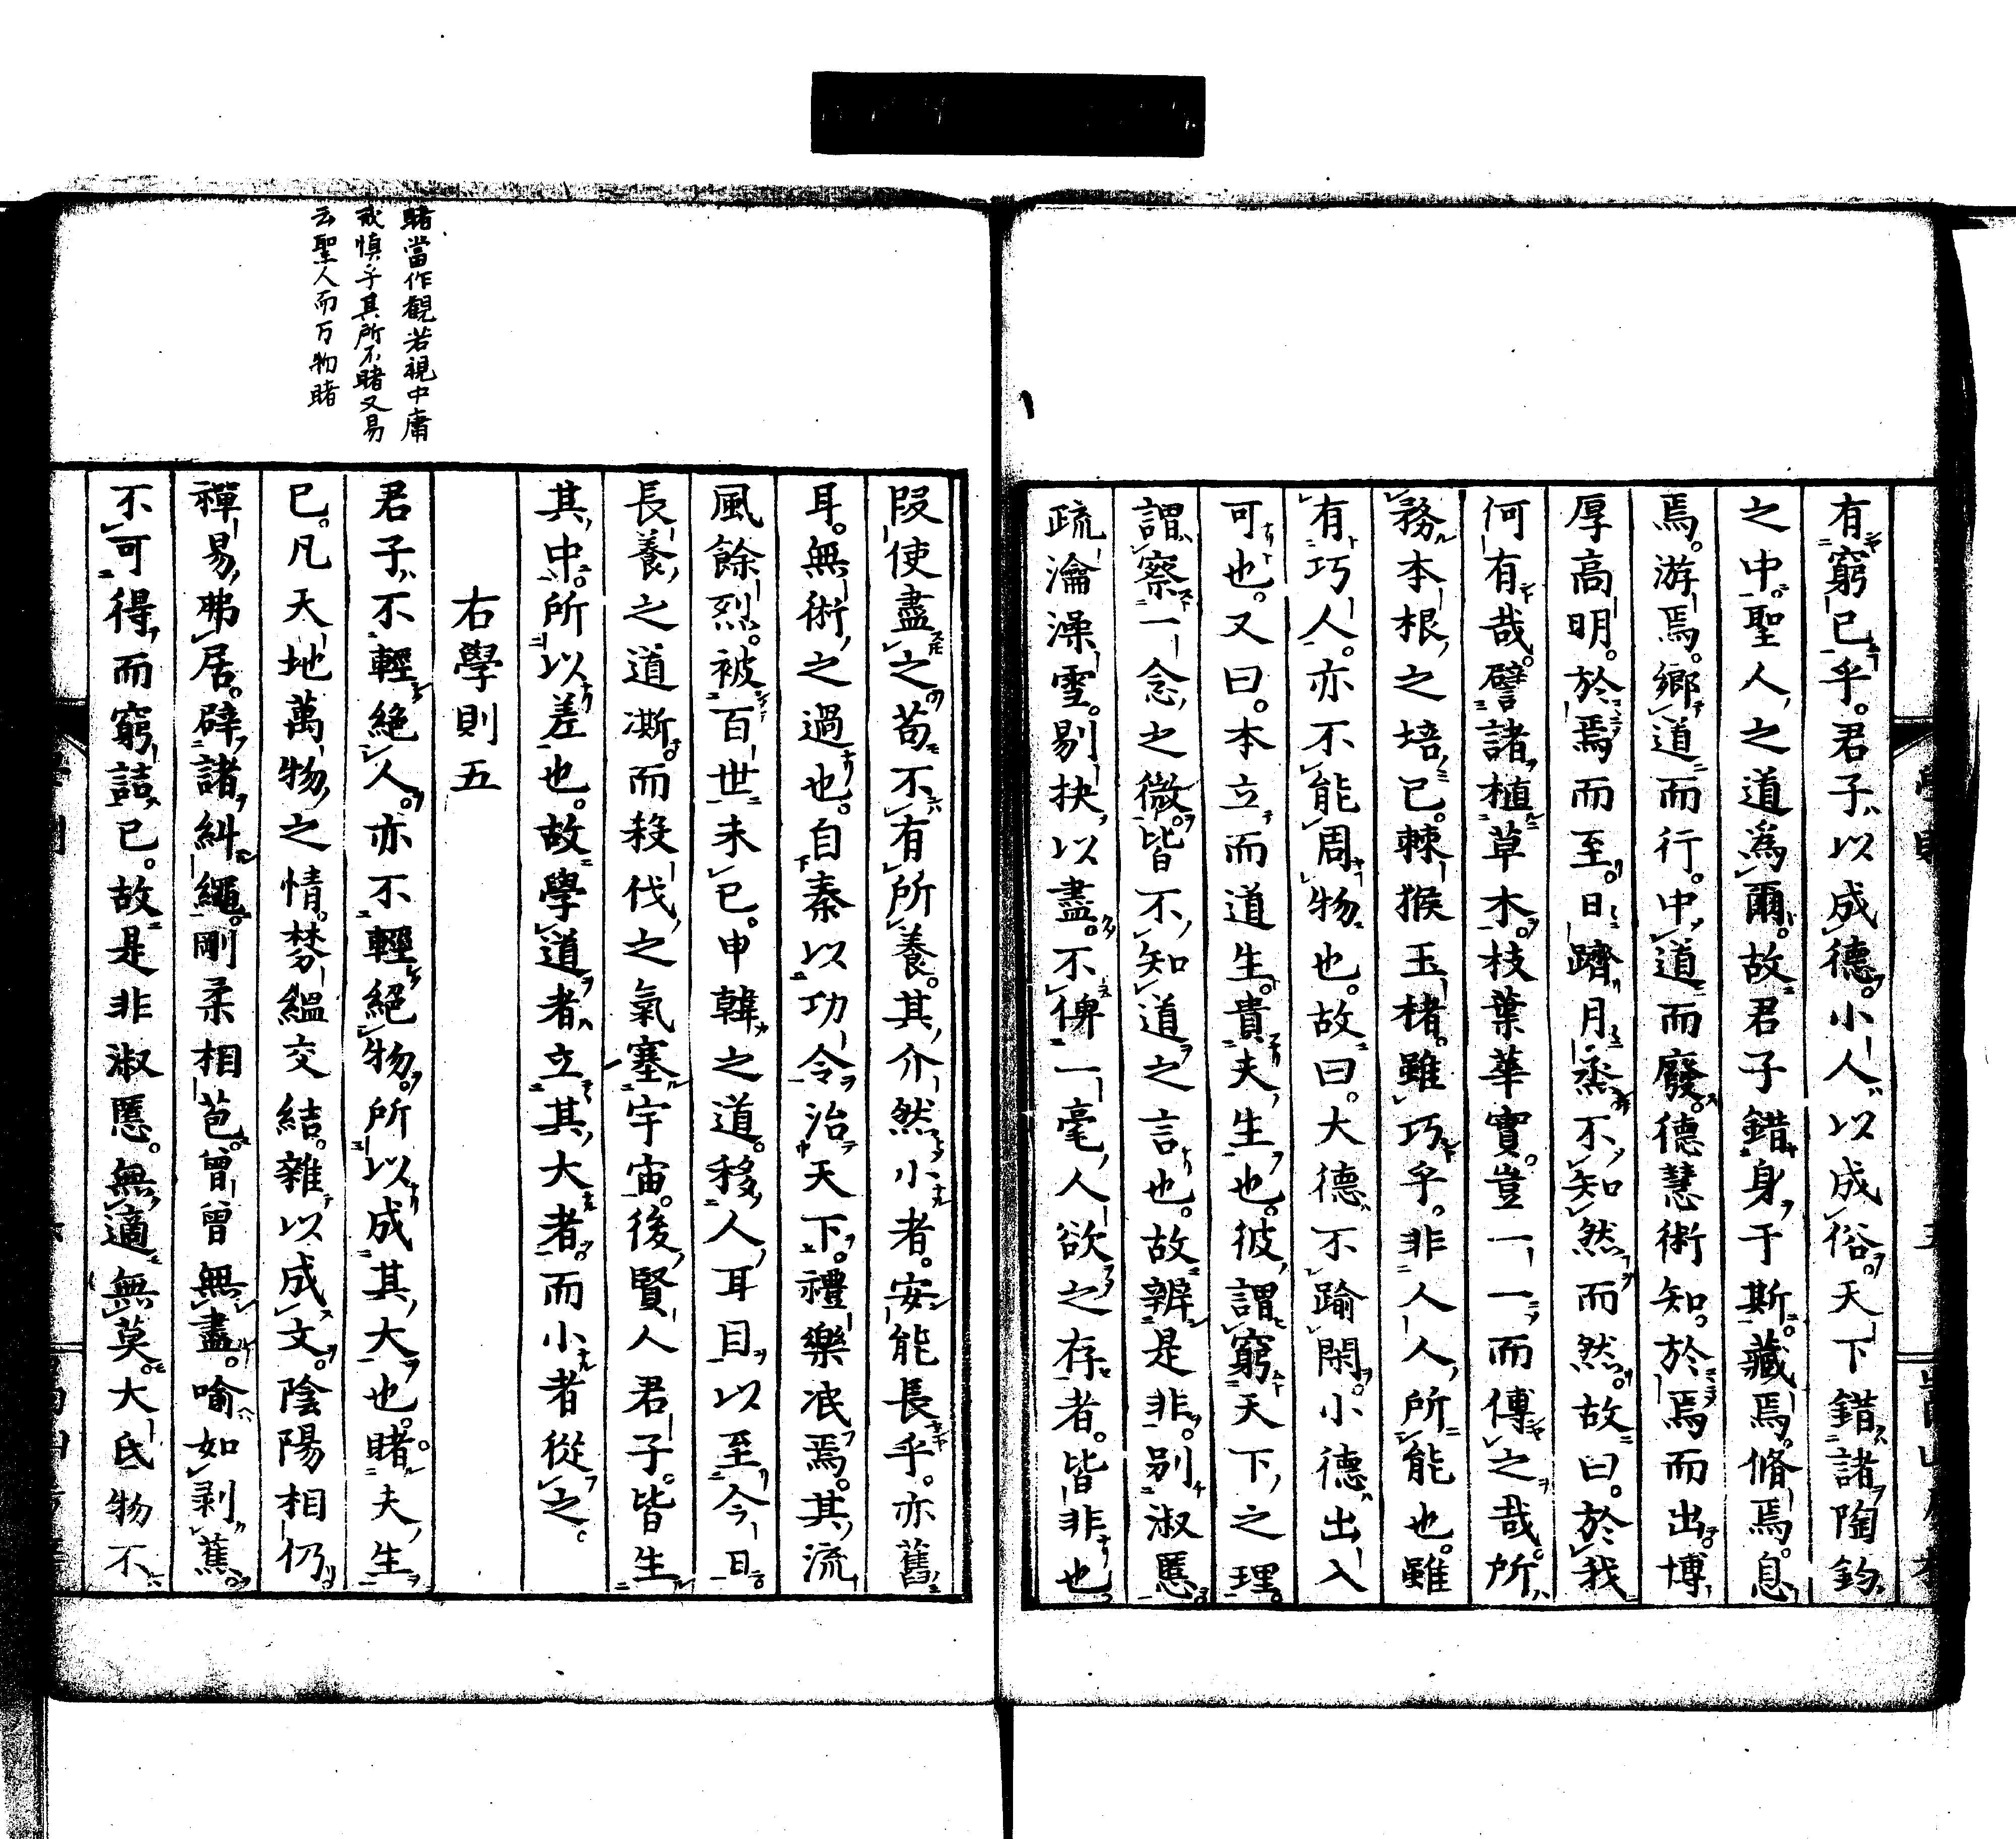 有窮已乎。君子以成德。小人以成俗。天下錯諸陶鈞
之中。聖人之道爲爾。故君子錯身于斯。藏焉。脩焉。息
焉。游焉。鄉道而行。中道而廢。德慧術知。於焉而出。博
厚高明。於焉而至。日躋月烝。不知然而然。故曰。於我
何有哉。譬諸植草木。枝葉華實。豈一一而傅之哉。所
務本根之培已。棘猴玉楮。雖巧乎。非人人所能也。雖
有巧人。亦不能周物也。故曰。大德不踰閑。小德出入
可也。又曰。本立而道生。貴夫生也。彼謂窮天下之理。
謂察一念之微。皆不知道之言也。故辨是非。別淑慝
疏瀹澡雪。剔抉以盡。不俾一毫人欲之存者。皆非也
睹當作觀若視中庸
戒慎乎其所不睹又易
云聖人而万物睹
段使盡之。苟不有所養。其介然小者。安能長乎。亦舊
耳。無術之過也。自秦以功令治天下。禮樂泯焉。其流
風餘烈。被百世未已。申韓之道。移人耳目。以至今日
長養之道澌。而殺伐之氣塞宇宙。後賢人君子。皆生
其中。所以差也。故學道者。立其大者。而小者從之。
右學則五
君子不輕絕人。亦不輕絕物。所以成其大也。睹夫生
已。凡天地萬物之情。棼緼交結。雜以成文。陰陽相仍
禪易弗居。辟諸糾繩。剛柔相苞。曾曾無盡。喻如剥蕉。
不可得而窮詰已。故是非淑慝。無適無莫。大氐物不